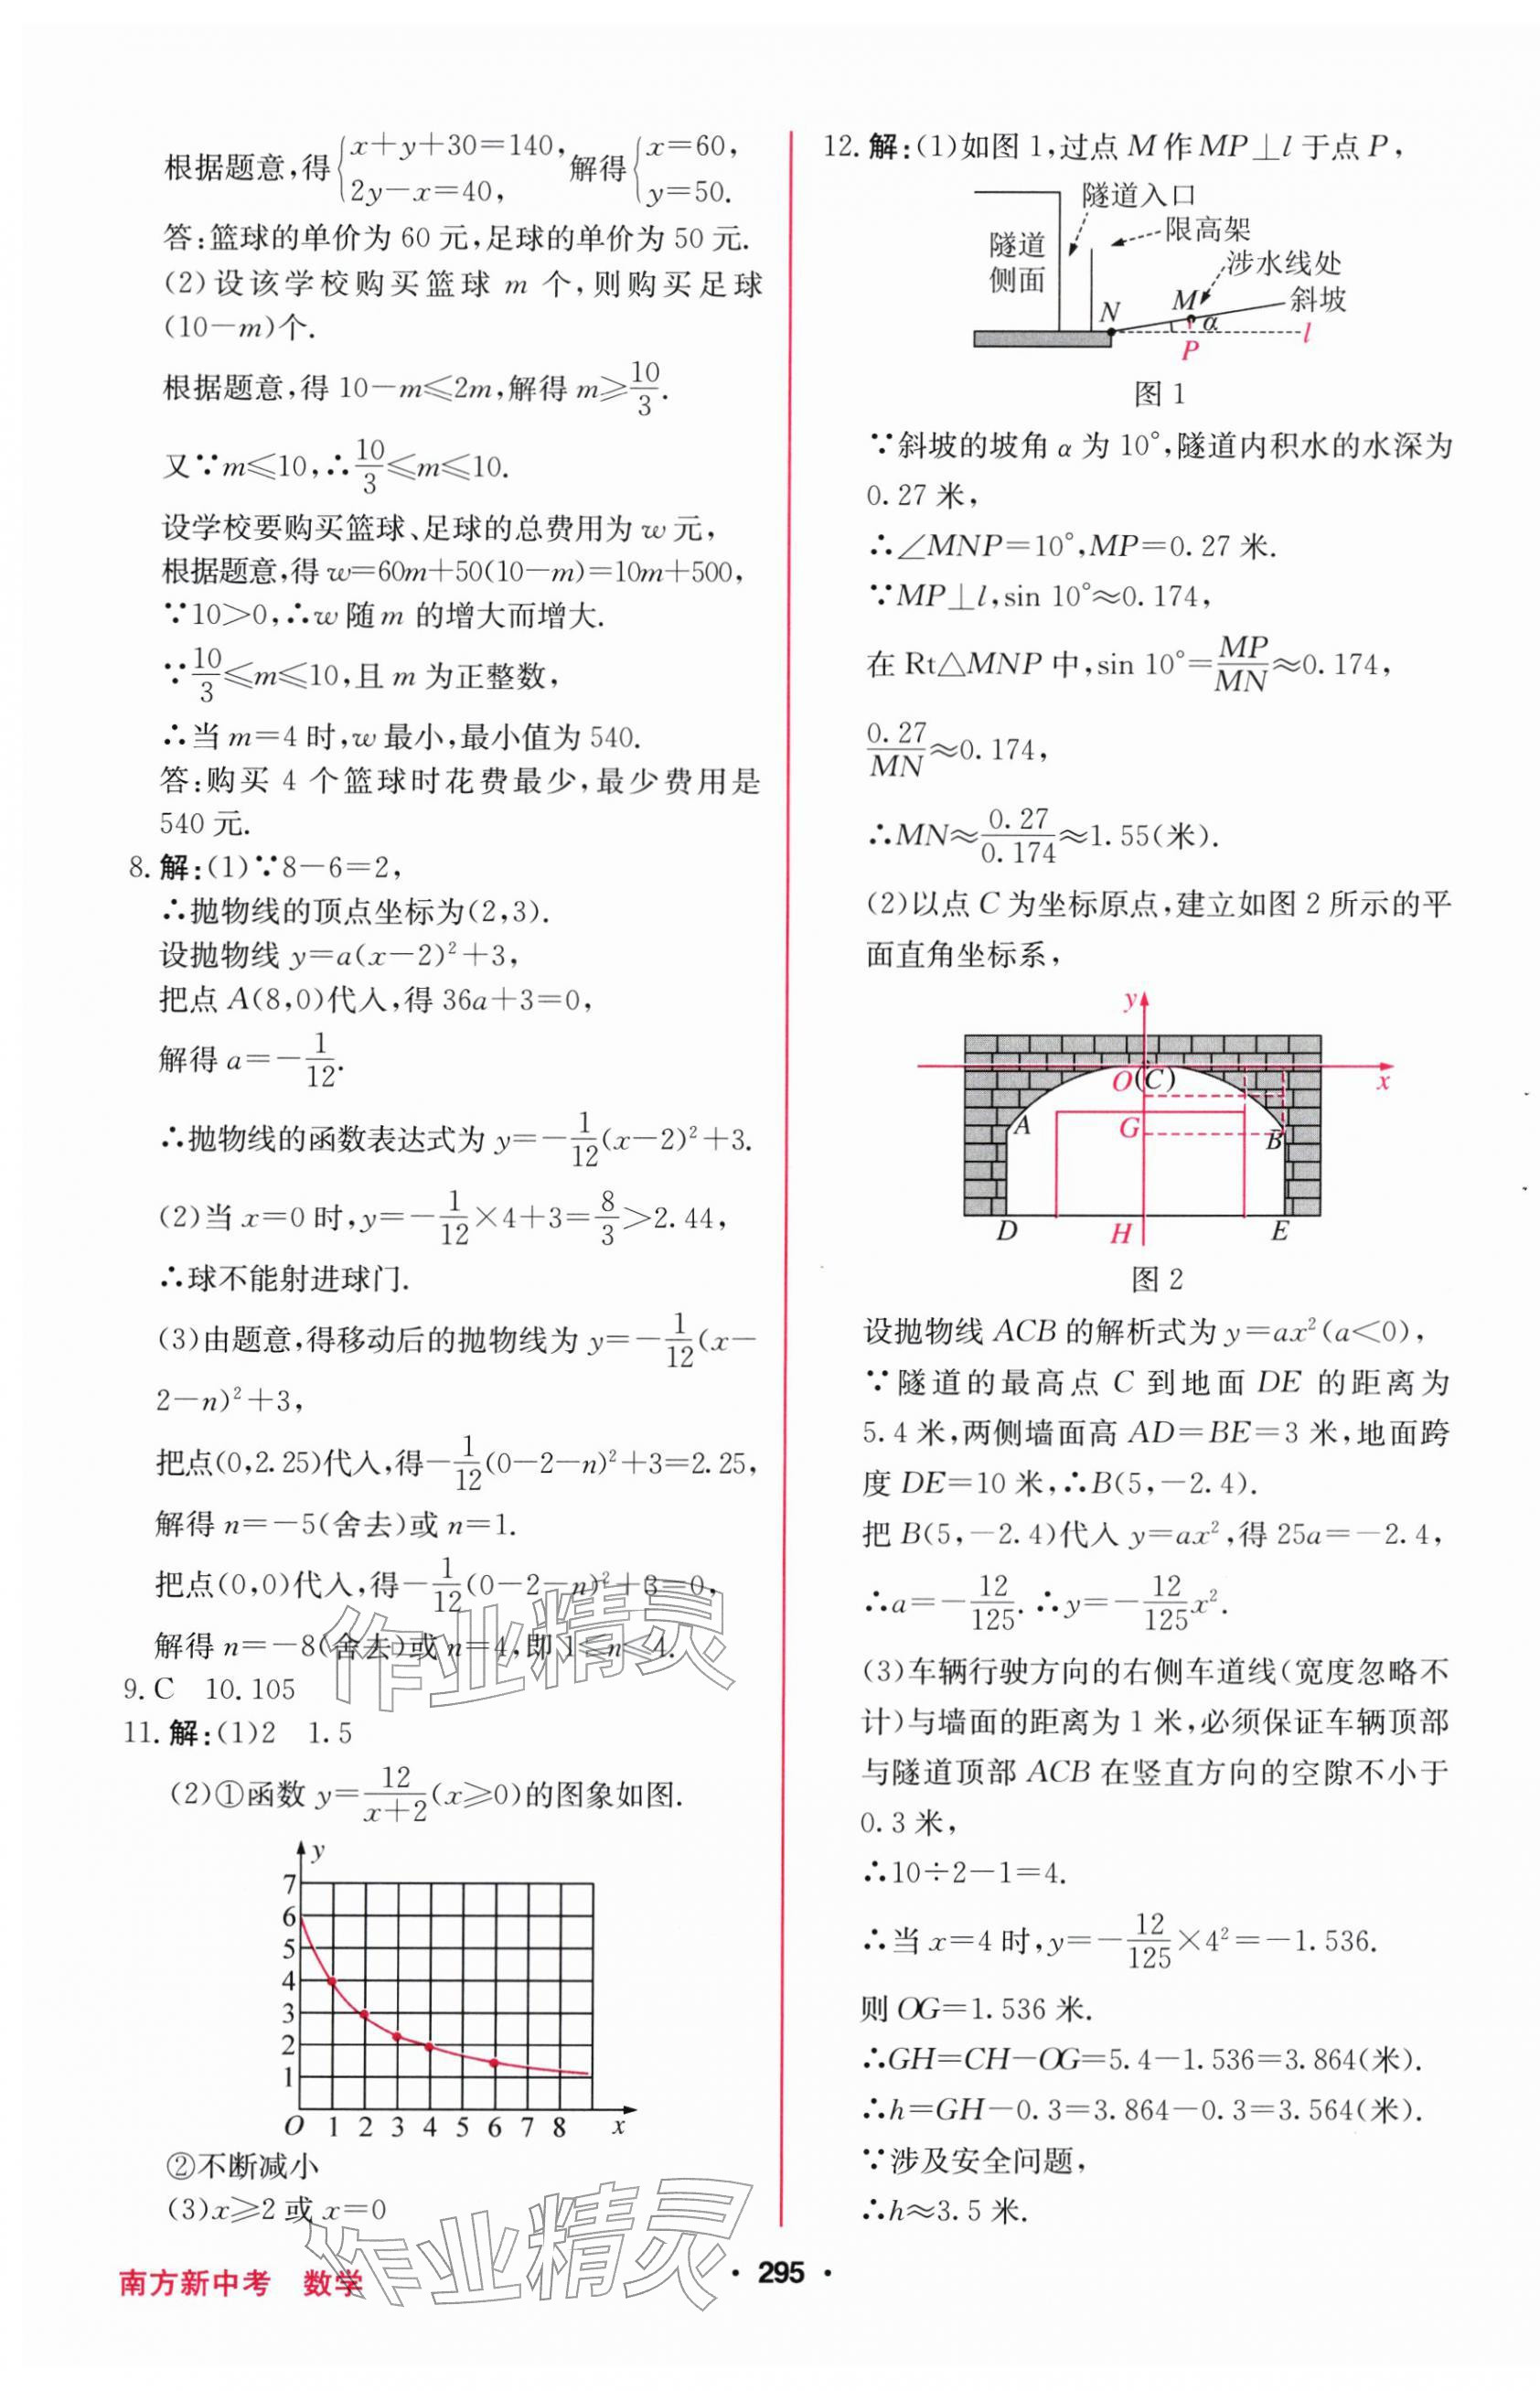 根据题意,得{x+y+30=140, 2y-x=40, 解得{x=60, y=50.
答:篮球的单价为 60 元,足球的单价为 50 元.
(2)设该学校购买篮球 m 个,则购买足球
(10-m)个.
根据题意,得 10-m≤2m,解得 m≥10/3.
又∵m≤10,∴10/3≤m≤10.
设学校要购买篮球、足球的总费用为 w 元,
根据题意,得 w=60m+50(10-m)=10m+500,
∵10>0,∴w 随 m 的增大而增大.
∵10/3≤m≤10,且 m 为正整数,
∴当 m=4 时,w 最小,最小值为 540.
答:购买 4 个篮球时花费最少,最少费用是
540 元.
8. 解:(1)∵8-6=2,
∴抛物线的顶点坐标为(2,3).
设抛物线 y=a(x-2)²+3,
把点 A(8,0)代入,得 36a+3=0,
解得 a=-1/12.
∴抛物线的函数表达式为 y=-1/12(x-2)²+3.
(2)当 x=0 时,y=-1/12×4+3=8/3>2.44,
∴球不能射进球门.
(3)由题意,得移动后的抛物线为 y=-1/12(x-
2-n)²+3,
把点(0,2.25)代入,得-1/12(0-2-n)²+3=2.25,
解得 n=-5(舍去)或 n=1.
把点(0,0)代入,得-1/12(0-2-n)²+3=0,
解得 n=-8(舍去)或 n=4,即 1≤n≤4.
9. C 10. 105
11. 解:(1)2 1.5
(2)①函数 y=12/(x+2)(x≥0)的图象如图.
y
7
6
5
4
3
2
1
O 1 2 3 4 5 6 7 8 x
②不断减小
(3)x≥2 或 x=0
12. 解:(1)如图 1,过点 M 作 MP⊥l 于点 P,
隧道入口
限高架
隧道
侧面
涉水线处
斜坡
N M α
P l
图 1
∵斜坡的坡角 α 为 10°,隧道内积水的水深为
0.27 米,
∴∠MNP=10°,MP=0.27 米.
∵MP⊥l,sin 10°≈0.174,
在 Rt△MNP 中,sin 10°=MP/MN≈0.174,
0.27/MN≈0.174,
∴MN≈0.27/0.174≈1.55(米).
(2)以点 C 为坐标原点,建立如图 2 所示的平
面直角坐标系,
y
O(C) x
A G B
D H E
图 2
设抛物线 ACB 的解析式为 y=ax²(a<0),
∵隧道的最高点 C 到地面 DE 的距离为
5.4 米,两侧墙面高 AD=BE=3 米,地面跨
度 DE=10 米,∴B(5,-2.4).
把 B(5,-2.4)代入 y=ax²,得 25a=-2.4,
∴a=-12/125. ∴y=-12/125x².
(3)车辆行驶方向的右侧车道线(宽度忽略不
计)与墙面的距离为 1 米,必须保证车辆顶部
与隧道顶部 ACB 在竖直方向的空隙不小于
0.3 米,
∴10÷2-1=4.
∴当 x=4 时,y=-12/125×4²=-1.536.
则 OG=1.536 米.
∴GH=CH-OG=5.4-1.536=3.864(米).
∴h=GH-0.3=3.864-0.3=3.564(米).
∵涉及安全问题,
∴h≈3.5 米.
作业精灵
作业精灵
南方新中考 数学
· 295 ·